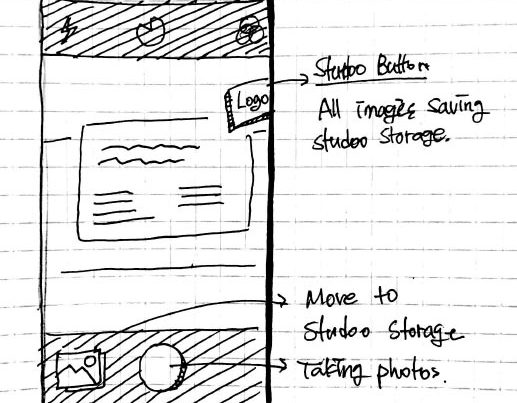 Logo
Studoo Button
All images saving
studoo storage.
Move to
Studoo Storage
Taking photos.